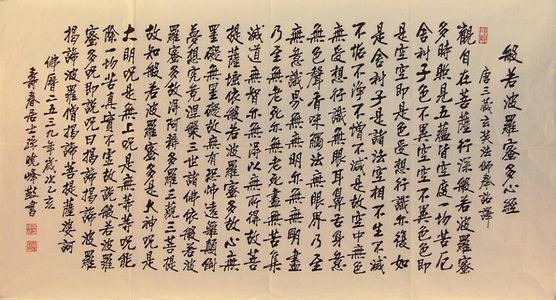 般若波羅蜜多心經
唐三藏玄奘法師奉詔譯
觀自在菩薩行深般若波羅蜜
多時照見五蘊皆空度一切苦厄
舍利子色不異空空不異色色即
是空空即是色受想行識亦復如
是舍利子是諸法空相不生不滅
不垢不淨不增不減是故空中無色
無受想行識無眼耳鼻舌身意
無色聲香味觸法無眼界乃至
無意識界無無明亦無無明盡
乃至無老死亦無老死盡無苦集
滅道無智亦無得以無所得故菩
提薩埵依般若波羅蜜多故心無
罣礙無罣礙故無有恐怖遠離顛倒
夢想究竟涅槃三世諸佛依般若波
羅蜜多故得阿耨多羅三藐三菩提
故知般若波羅蜜多是大神咒是
大明咒是無上咒是無等等咒能
除一切苦真實不虛故說般若波羅
蜜多咒即說咒曰揭諦揭諦波羅
揭諦波羅僧揭諦菩提薩婆訶
佛曆二五三九年歲次乙亥
壽春居士孫曉峰敬書